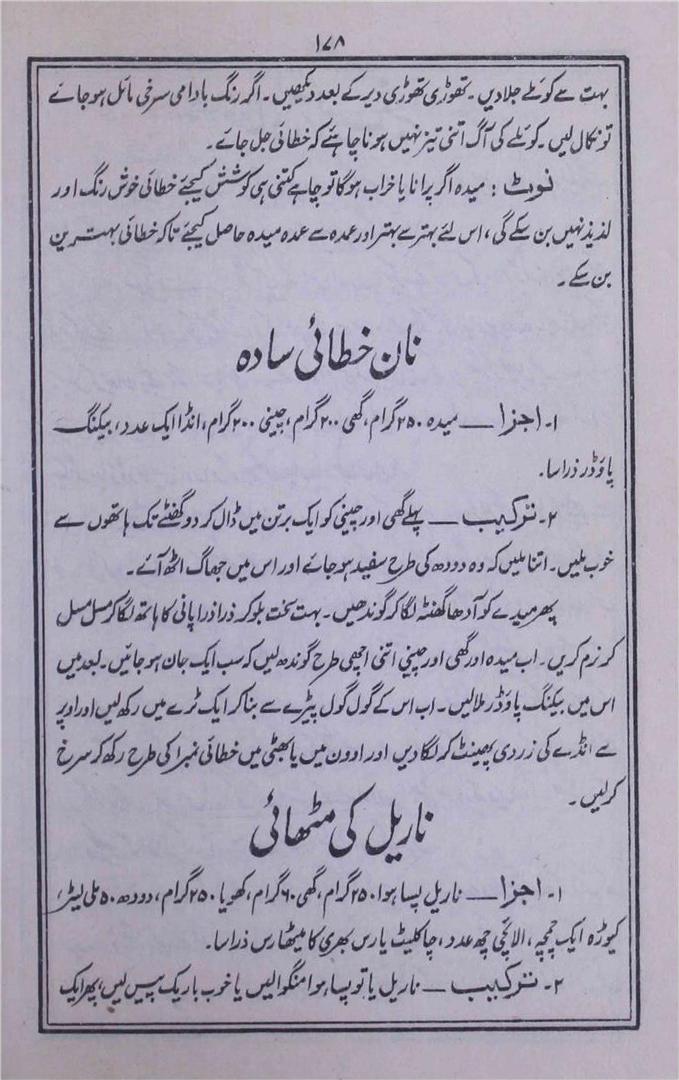 ۱۷۸
بہت سے کوئلے جلا دیں۔ تھوڑی تھوڑی دیر کے بعد دیکھیں۔ اگر رنگ بادامی سرخی مائل ہو جائے
تو نکال لیں۔ کوئلے کی آگ اتنی تیز نہیں ہونا چاہئے کہ خطائی جل جائے۔
نوٹ : میدہ اگر پرانا یا خراب ہوگا تو چاہے کتنی ہی کوشش کیجئے خطائی خوش رنگ اور
لذیذ نہیں بن سکے گی، اس لئے بہتر سے بہتر اور عمدہ سے عمدہ میدہ حاصل کیجئے تاکہ خطائی بہترین
بن سکے۔
نان خطائی سادہ
۱۔ اجزا — میدہ ۲۵۰ گرام، گھی ۲۰۰ گرام، چینی ۲۰۰ گرام، انڈا ایک عدد، بیکنگ
پاؤڈر ذرا سا۔
۲۔ ترکیب — پہلے گھی اور چینی کو ایک برتن میں ڈال کر دو گھنٹے تک ہاتھوں سے
خوب ملیں۔ اتنا ملیں کہ وہ دودھ کی طرح سفید ہو جائے اور اس میں جھاگ اٹھ آئے۔
پھر میدے کو آدھا گھنٹہ لگا کر گوندھیں۔ بہت سخت ہو کر ذرا ذرا پانی کا ہاتھ لگا کر مسل مسل
کر نرم کریں۔ اب میدہ اور گھی اور چینی اتنی اچھی طرح گوندھ لیں کہ سب ایک جان ہو جائیں۔ بعد میں
اس میں بیکنگ پاؤڈر ملا لیں۔ اب اس کے گول گول پیڑے سے بنا کر ایک ٹرے میں رکھ لیں اور اوپر
سے انڈے کی زردی پھینٹ کر لگا دیں اور اوون میں یا بھٹی میں خطائی نمبر ۱ کی طرح رکھ کر سرخ
کر لیں۔
ناریل کی مٹھائی
۱۔ اجزا — ناریل پسا ہوا ۲۵۰ گرام، گھی ۶۰ گرام، کھویا ۲۵۰ گرام، دودھ ۵۰ ملی لیٹر،
کیوڑہ ایک چمچہ، الائچی چھ عدد، چاکلیٹ یا رس بھری کا میٹھا رس ذرا سا۔
۲۔ ترکیب — ناریل یا تو پسا ہوا منگوالیں یا خوب باریک پیس لیں، پھر ایک